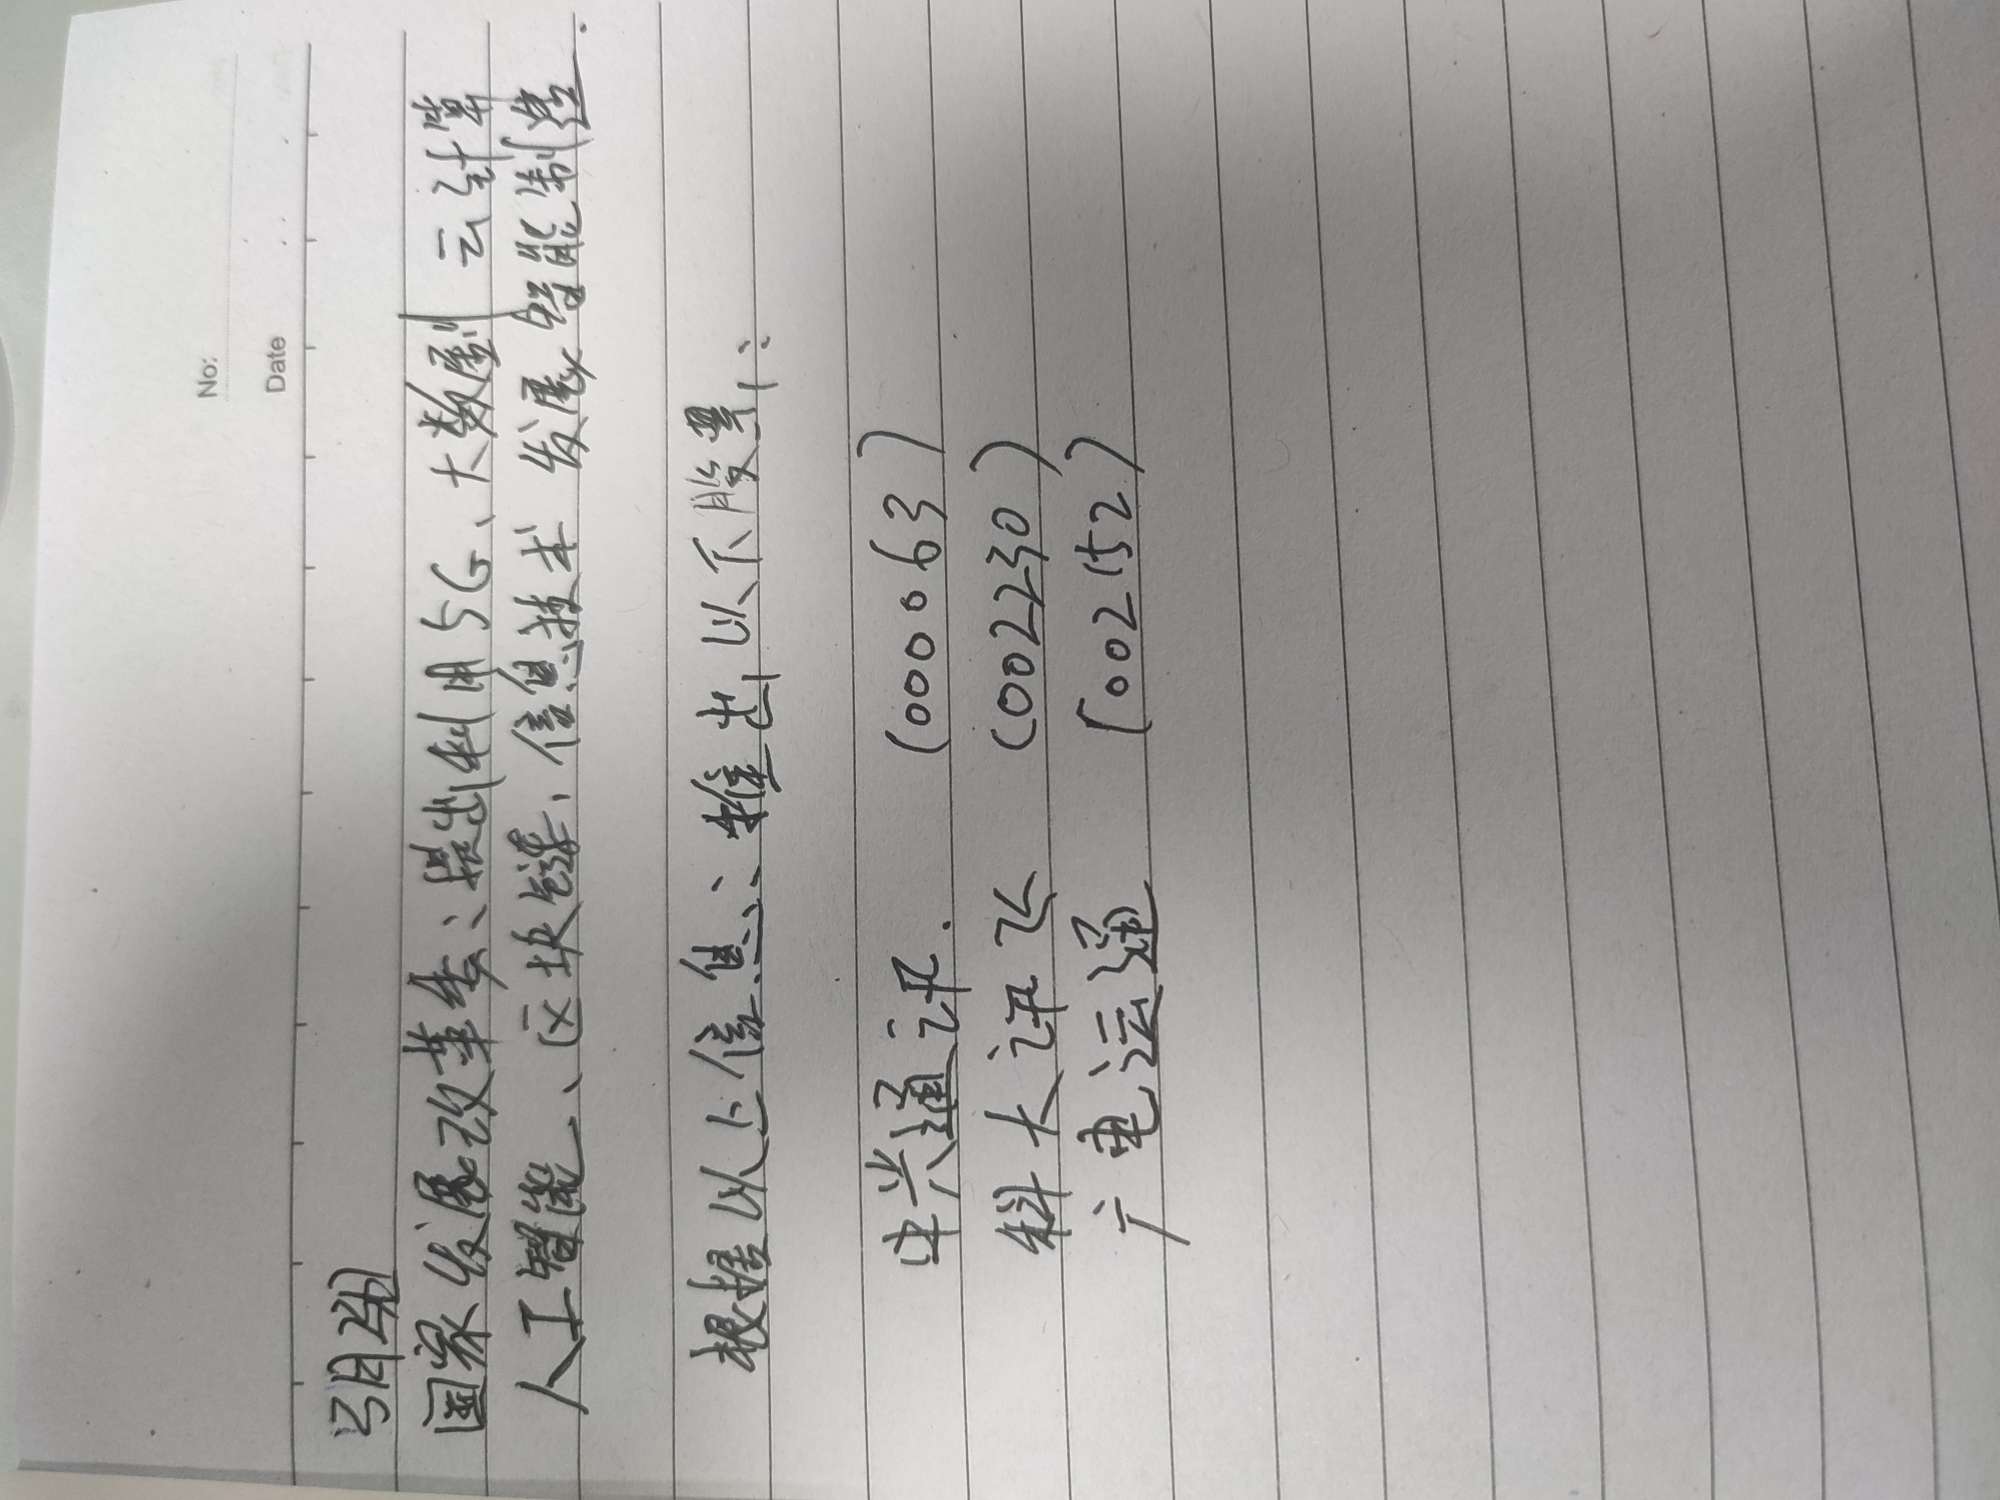 No:
Date
3月24日
国家发展改革委:提出利用5G、大数据、云计算
人工智能、区块链、信息技术 发展智能制造.
根据以上信息:推出以下股票:
中兴通讯. (000063)
科大讯飞 (002230)
广电运通 (002152)